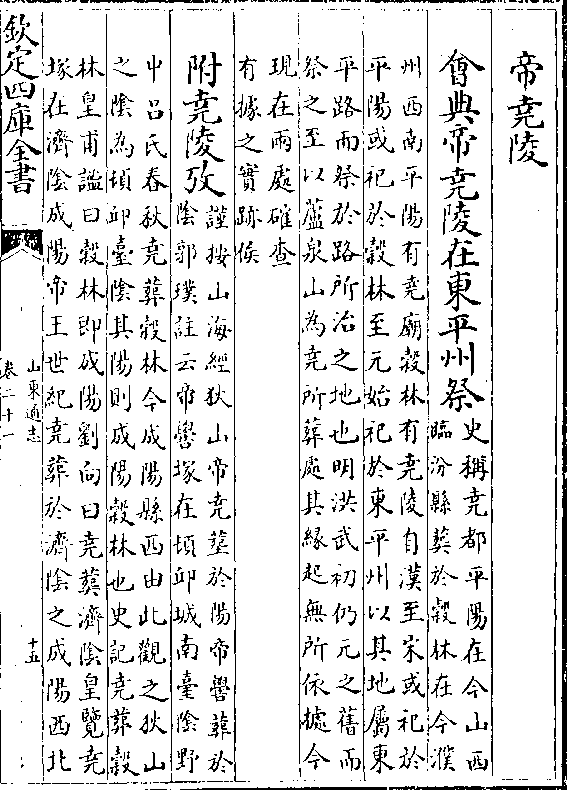 帝堯陵
會典帝堯陵在東平州祭
史稱堯都平陽在今山西
臨汾縣葬於穀林在今濮
州西南平陽有堯廟穀林有堯陵自漢至宋或祀於
平陽或祀於穀林至元始祀於東平州以其地屬東
平路而祭於路所治之地也明洪武初仍元之舊而
祭之至以蘆泉山為堯所葬處其縁起無所依㨿今
現在兩處確查
有據之實跡俟
附堯陵攷
謹按山海經狄山帝堯塟於陽帝嚳葬於
陰郭璞註云帝嚳塚在頓邱城南臺陰野
中吕氏春秋堯葬穀林今成陽縣西由此觀之狄山
之陰為頓邱臺陰其陽則成陽穀林也史記堯葬穀
林皇甫謐曰穀林即成陽劉向曰堯葬濟陰皇覽堯
塚在濟陰成陽帝王世紀堯葬於濟隂之成陽西北
欽定四庫全書
山東通志
卷二十一
十五